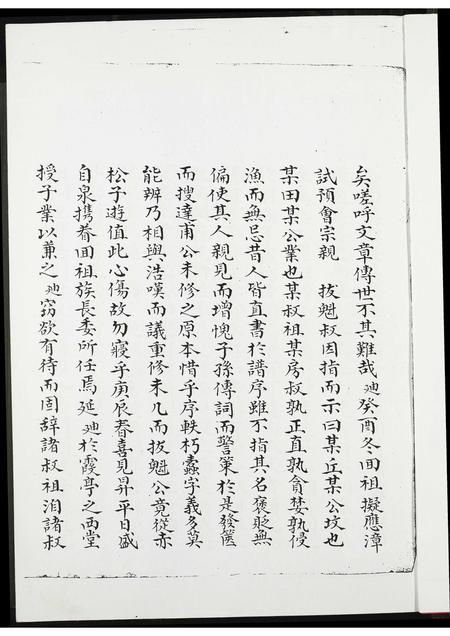 矣嗟呼文章傳世不其難哉廸癸酉冬回祖擬應漳
試預會宗親 拔魁叔因指而示曰某丘某公坟也
某田某公業也某叔祖某房叔孰正直孰貪婪孰侵
漁而無忌昔人皆直書於譜序雖不指其名褒貶無
偏使其人親見而增愧子孫傳詞而警策於是發篋
而搜達甫公未修之原本惜乎序軼朽蠹字義多莫
能辨乃相與浩嘆而議重修未几而拔魁公竟從赤
松子遊值此心傷故勿寢乎庚辰春喜見昇平日盛
自泉携眷回祖族長委所任焉延廸於霞亭之西堂
授子業以兼之廸窃欲有待而固辞諸叔祖洎諸叔